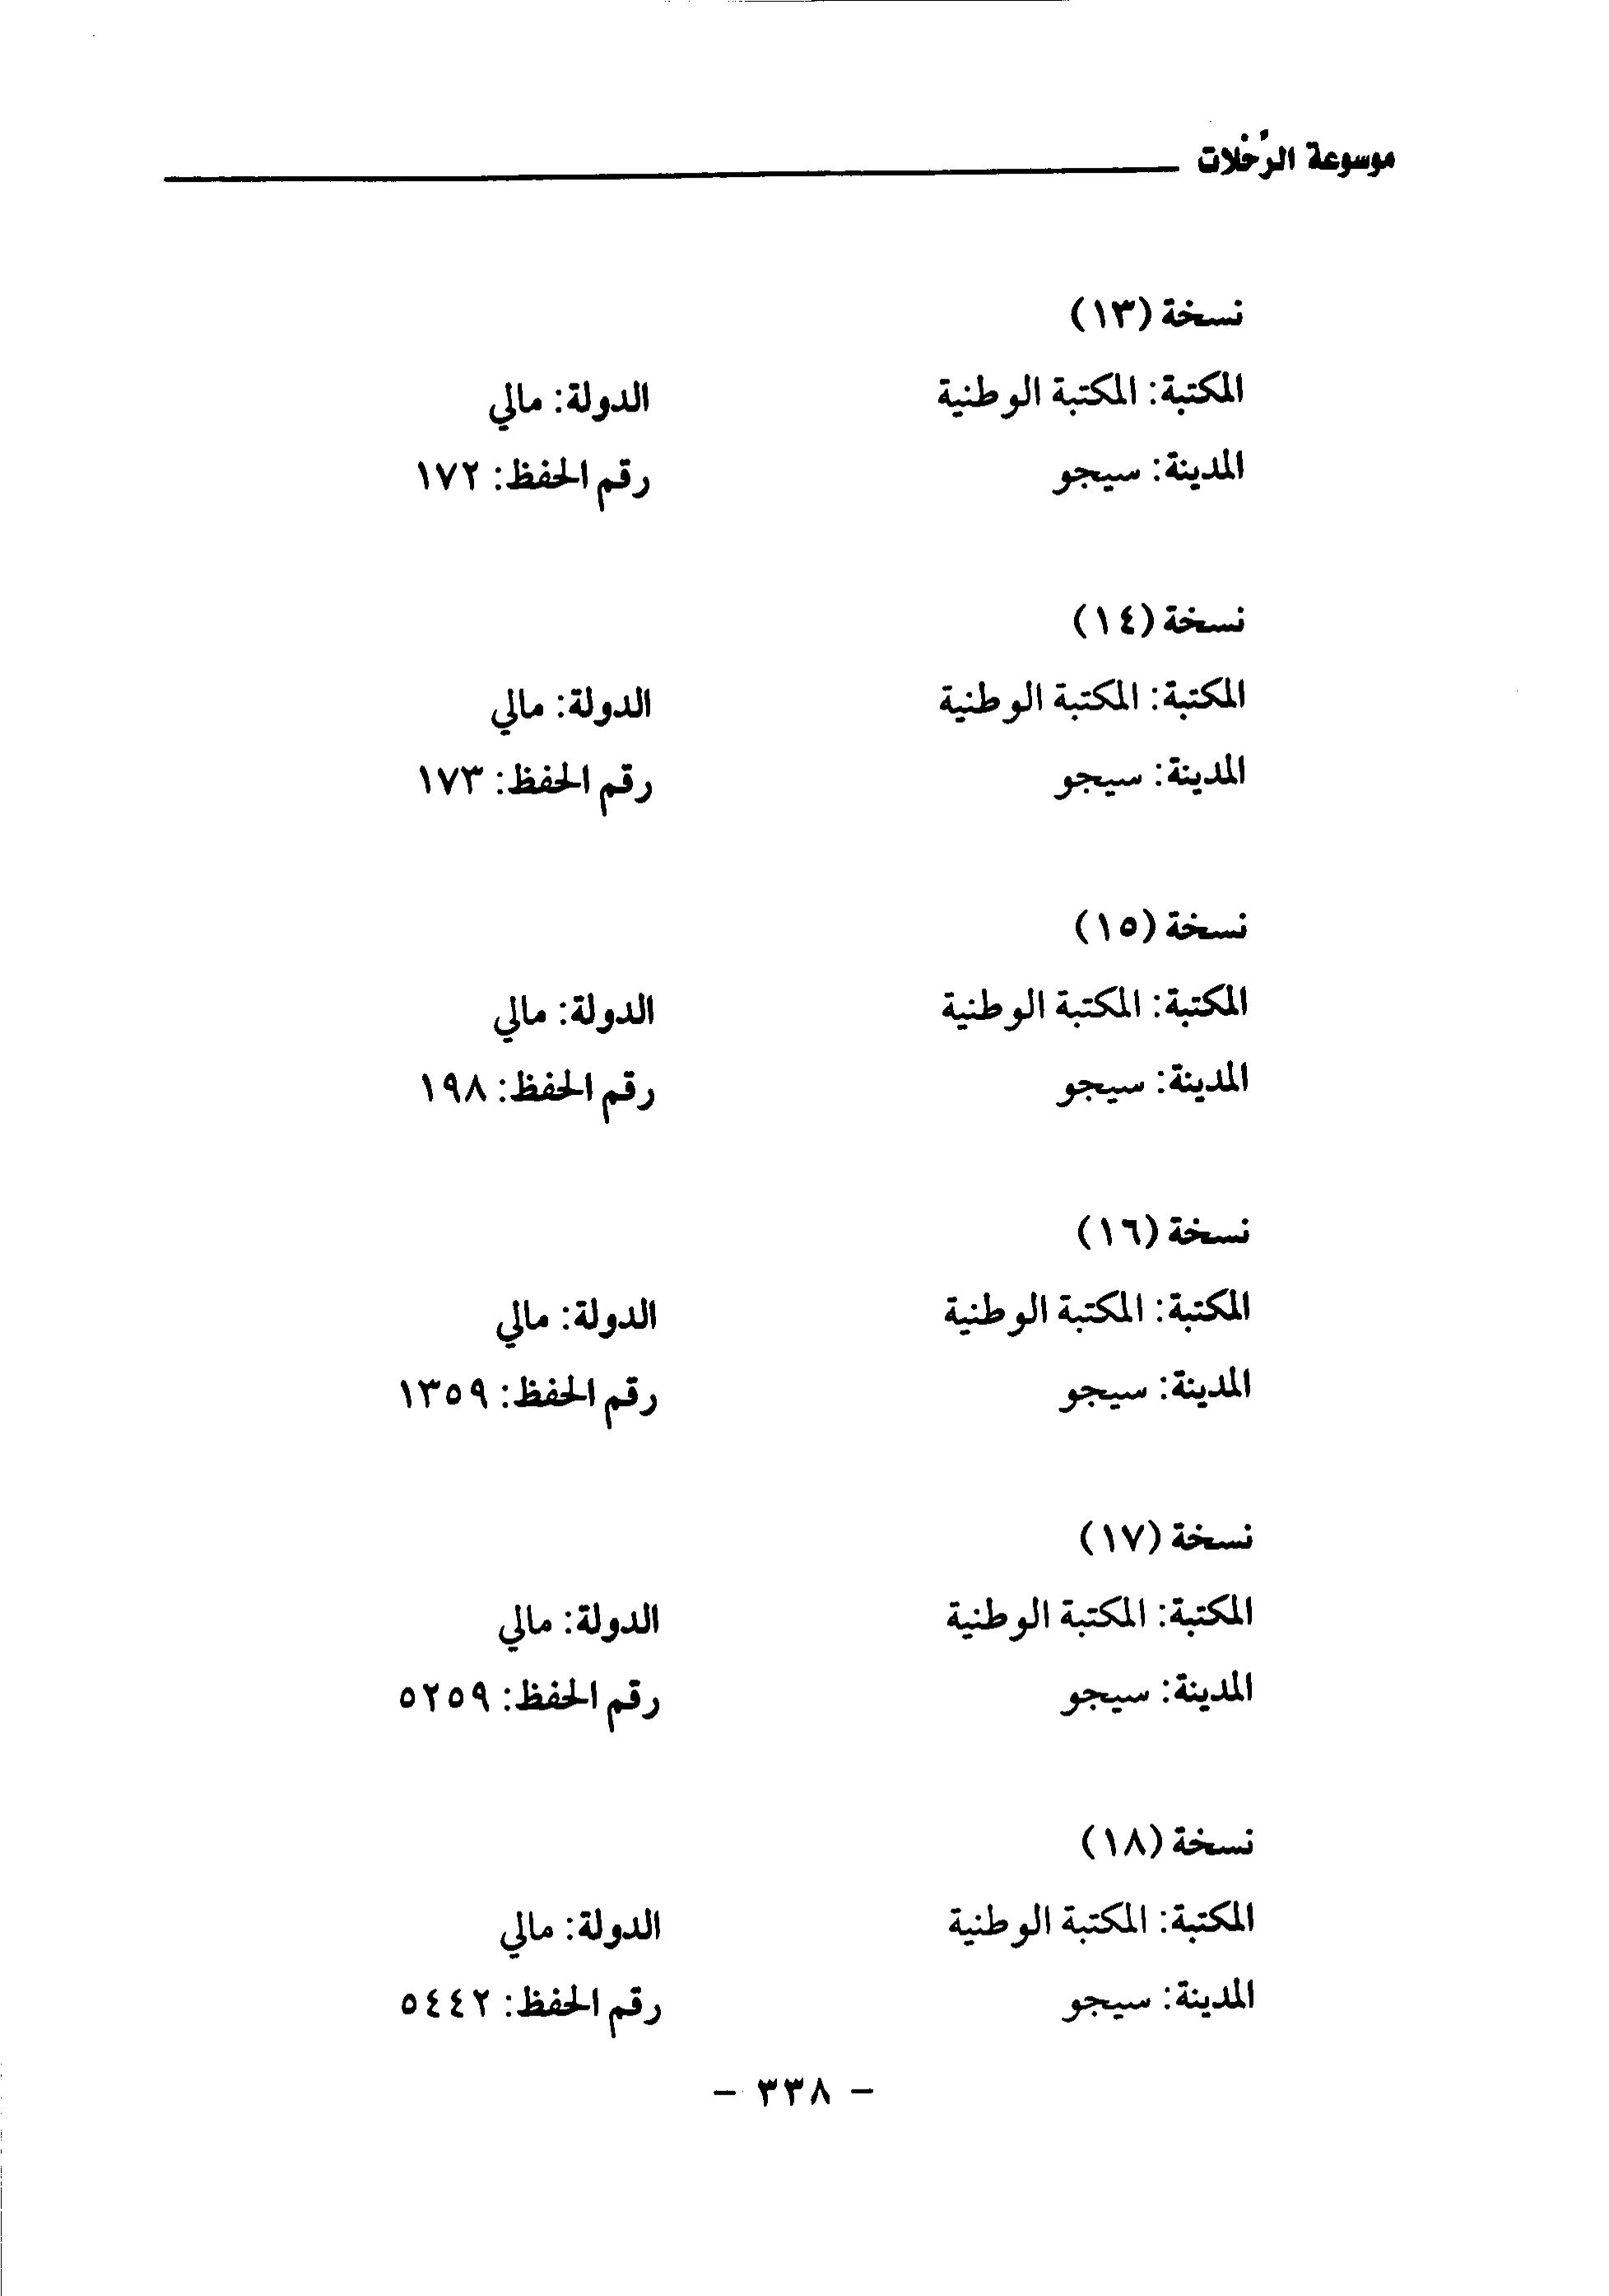 موسوعة الرّحلات
نسخة (١٣)
المكتبة: المكتبة الوطنية الدولة: مالي
المدينة: سيجو رقم الحفظ: ١٧٢
نسخة (١٤)
المكتبة: المكتبة الوطنية الدولة: مالي
المدينة: سيجو رقم الحفظ: ١٧٣
نسخة (١٥)
المكتبة: المكتبة الوطنية الدولة: مالي
المدينة: سيجو رقم الحفظ: ١٩٨
نسخة (١٦)
المكتبة: المكتبة الوطنية الدولة: مالي
المدينة: سيجو رقم الحفظ: ١٣٥٩
نسخة (١٧)
المكتبة: المكتبة الوطنية الدولة: مالي
المدينة: سيجو رقم الحفظ: ٥٢٥٩
نسخة (١٨)
المكتبة: المكتبة الوطنية الدولة: مالي
المدينة: سيجو رقم الحفظ: ٥٤٤٢
- ٣٣٨ -